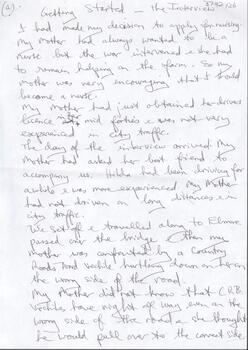 (a).
Getting Started - the Interview
I had made my decision to apply for nursing.
My Mother had always wanted to be a
nurse but the war intervened & she had
to remain helping on the farm. So my
Mother was very encouraging that I should
become a nurse.
My Mother had just obtained her drivers
licence mid forties & was not very
experienced in city traffic.
The day of the interview arrived. My
Mother had asked her best friend to
accompany us. Hilda had been driving for
awhile & was more experienced. My Mother
had not driven on long distances & in
city traffic.
We set off & travelled along to Elmore
passed over the bridge. Then my
Mother was confronted by a Country
Roads Board Vechile hurtling down on her on
the wrong side of the road.
My Mother did not know that C.R.B.
Vechiles have right of way even on the
wrong side of the road & she thought
he would pull over to the correct side